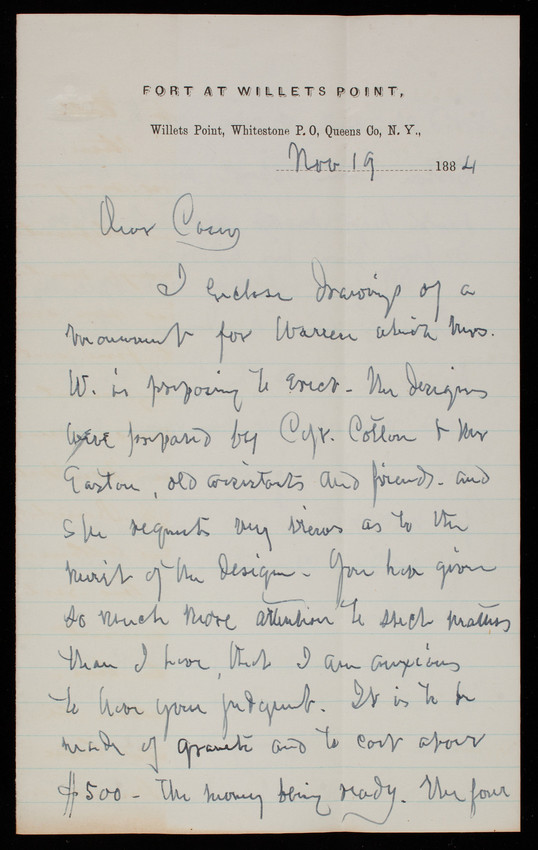 FORT AT WILLETS POINT,
Willets Point, Whitestone P. O, Queens Co, N. Y.,
Nov 19 1884
Dear Casey
I enclose drawings of a
monument for Warren which Mrs.
W. is proposing to erect - The designs
were prepared by Capt. Cotton & Mr
Easton, old assistants and friends - and
She requests my views as to the
merit of the design - You have given
so much more attention to such matters
than I have, that I am anxious
to have your judgment. It is to be
made of granite and to cost about
$500 - The money being ready. The four